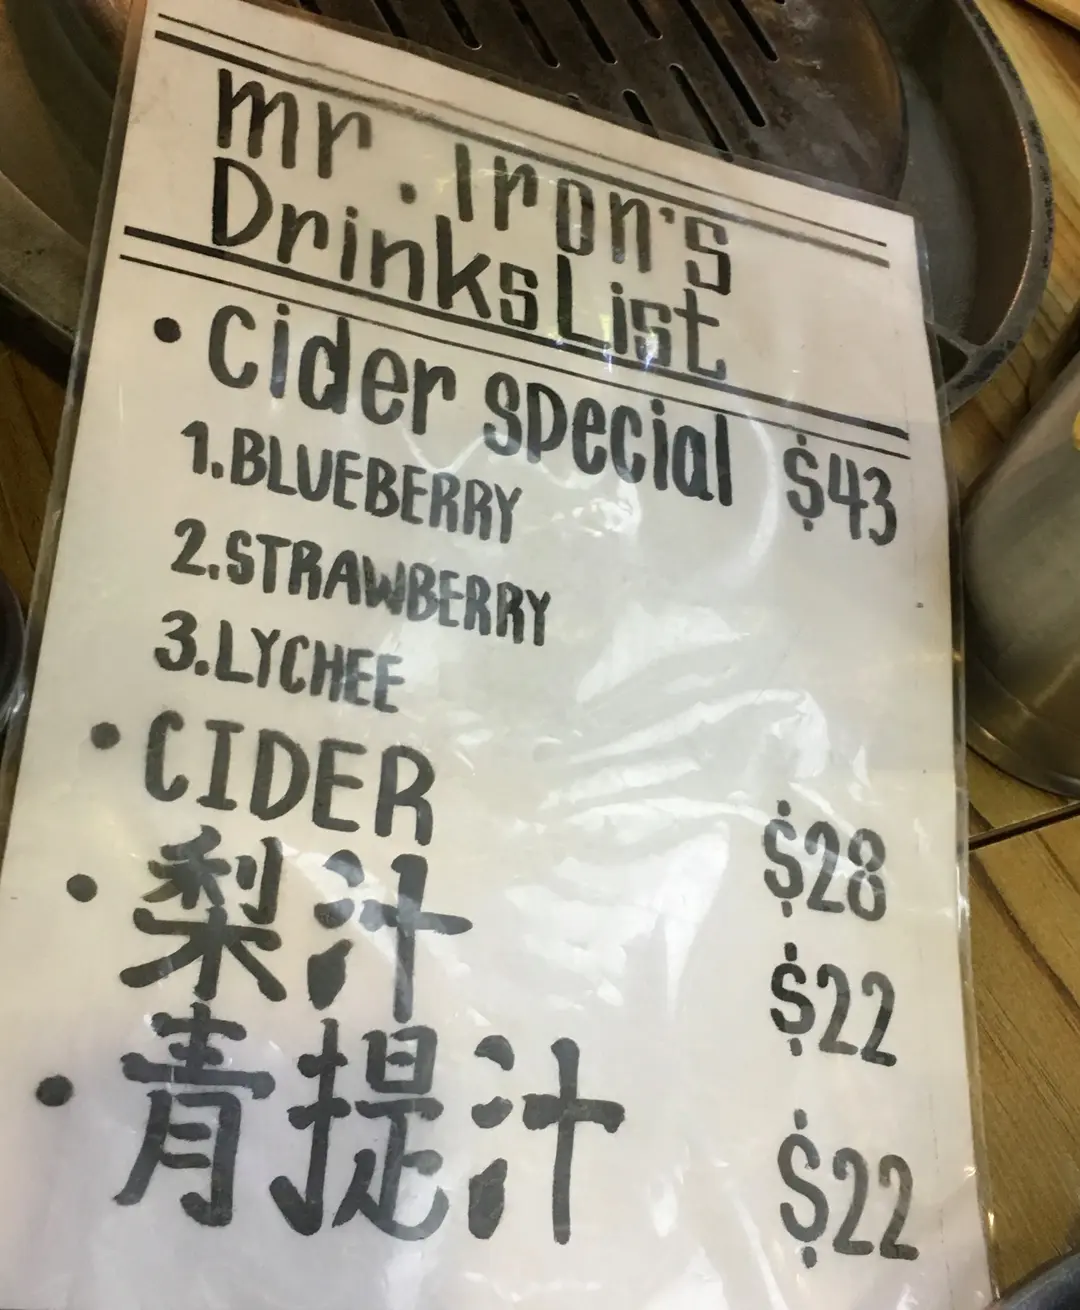 mr. Iron's
Drinks List
• Cider special $43
1. BLUEBERRY
2. STRAWBERRY
3. LYCHEE
• CIDER $28
• 梨汁 $22
• 青提汁 $22